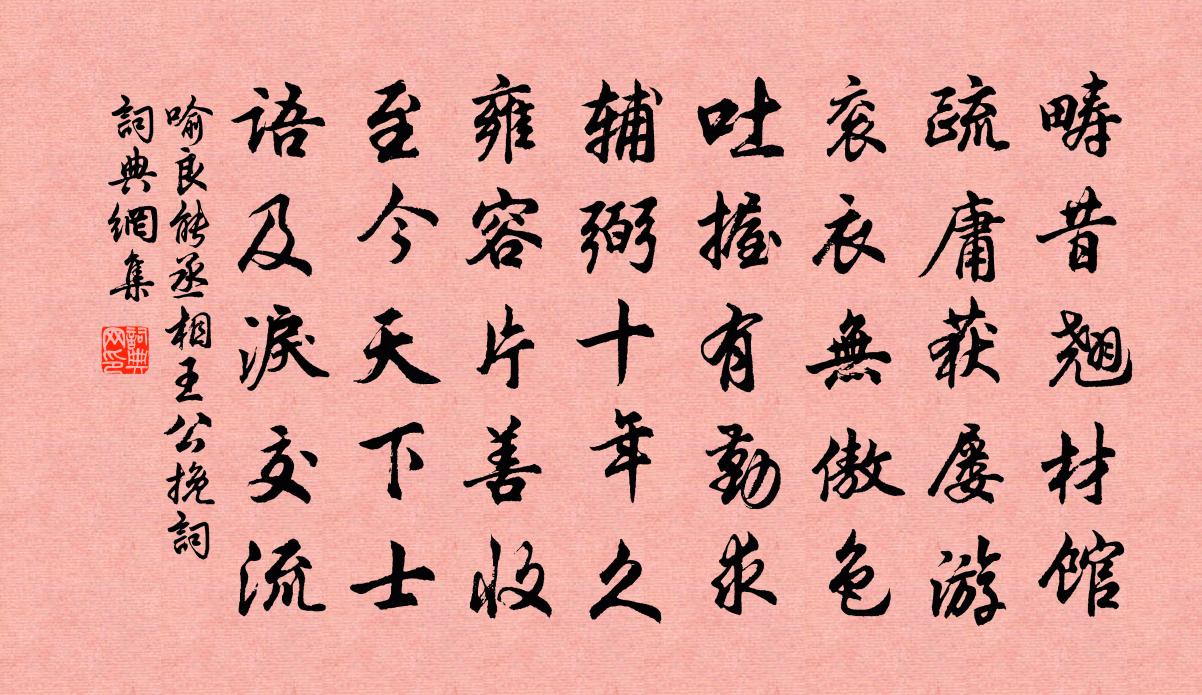 畴昔翘材馆
疏庸获屡游
衮衣無傲色
吐握有勤求
辅弼十年久
雍容片善收
至今天下士
语及淚交流
喻良能丞相王公挽詞
詞典網集
詞典网印